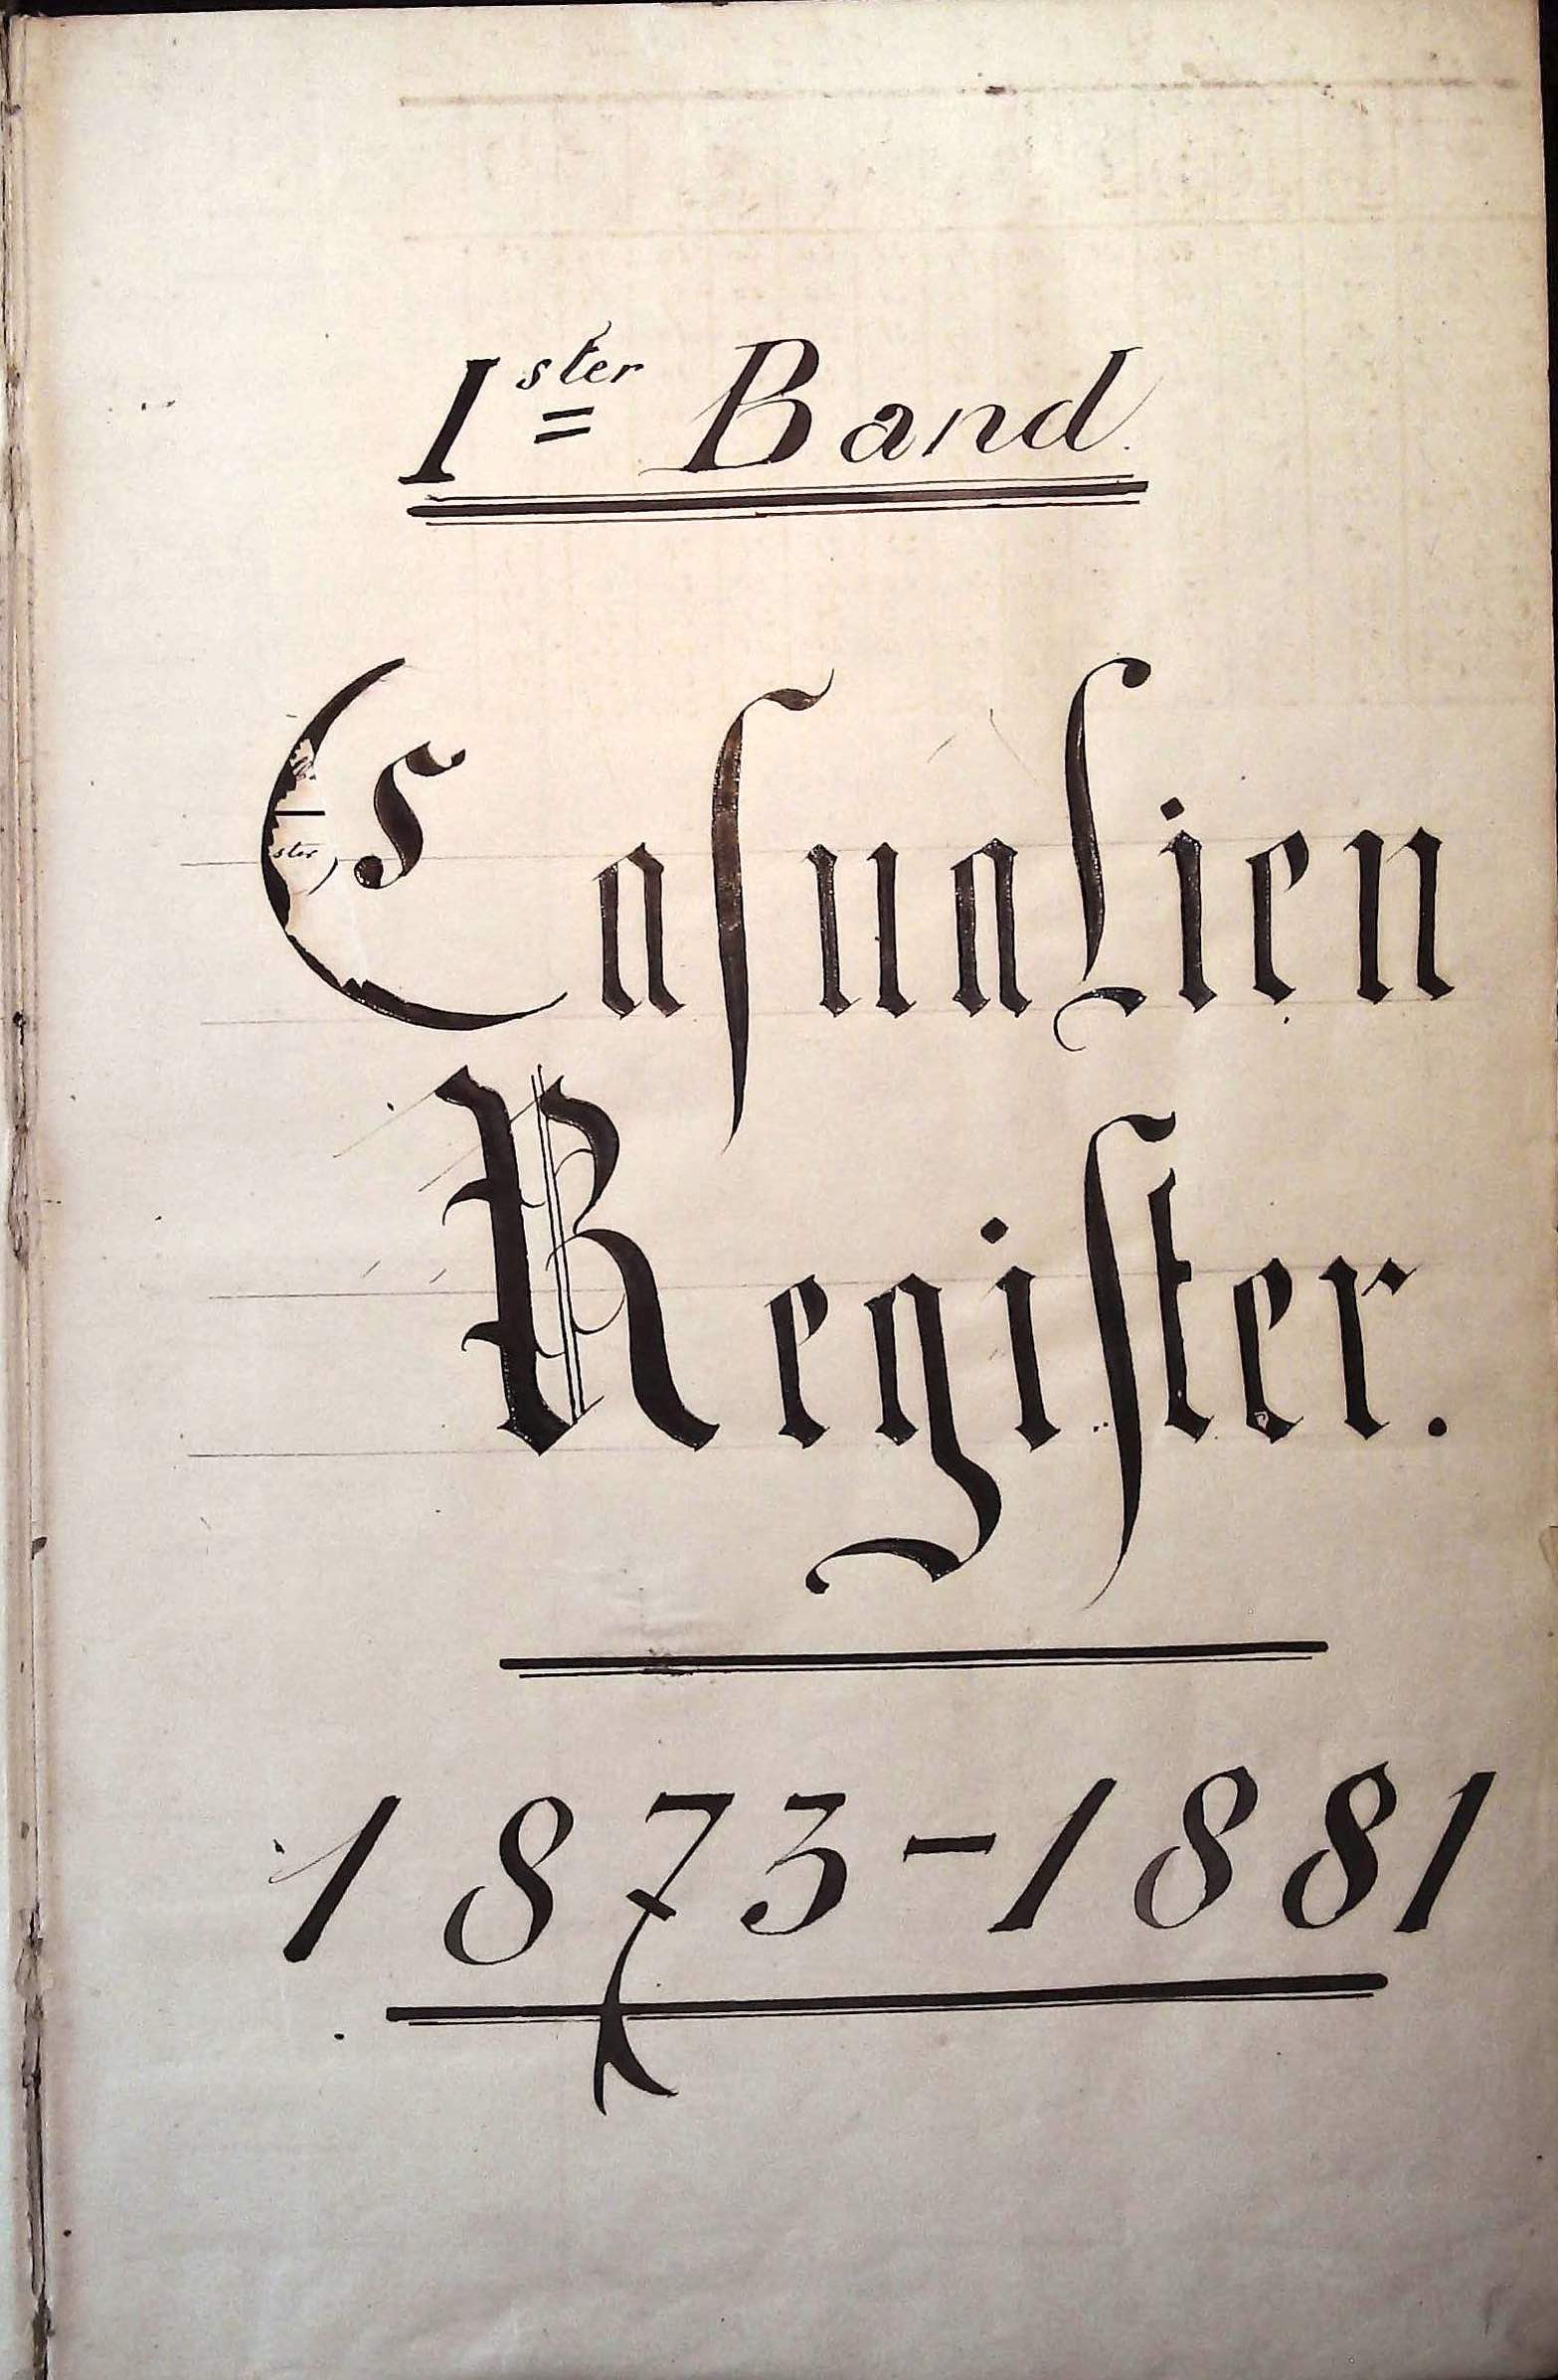 Ister Band.
Casualien
Register.
1873-1881